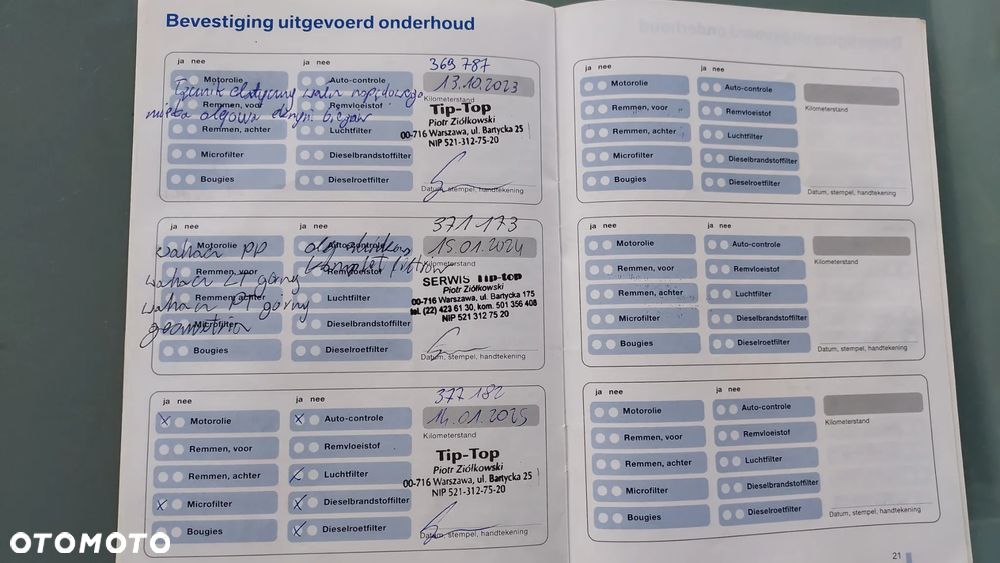 Bevestiging uitgevoerd onderhoud
ja nee
ja nee
369 787
Motorolie
Auto-controle
13.10.2023
Kilometerstand
Remmen, voor
Remvloeistof
Remmen, achter
Luchtfilter
Microfilter
Dieselbrandstoffilter
Bougies
Dieselroetfilter
Tip-Top
Piotr Ziółkowski
00-716 Warszawa, ul. Bartycka 25
NIP 521-312-75-20
Datum, stempel, handtekening
ja nee
ja nee
371 173
Motorolie
Auto-controle
15.01.2024
Kilometerstand
Remmen, voor
Remvloeistof
Remmen, achter
Luchtfilter
Microfilter
Dieselbrandstoffilter
Bougies
Dieselroetfilter
wahacz pp
wahacz LT górny
komplet filtrów
wahacz PT górny
geometria
SERWIS Tip-top
Piotr Ziółkowski
00-716 Warszawa, ul. Bartycka 175
tel. (22) 423 61 30, kom. 501 356 408
NIP 521 312 75 20
Datum, stempel, handtekening
ja nee
ja nee
377 182
Motorolie
Auto-controle
14.01.2025
Kilometerstand
Remmen, voor
Remvloeistof
Remmen, achter
Luchtfilter
Microfilter
Dieselbrandstoffilter
Bougies
Dieselroetfilter
Tip-Top
Piotr Ziółkowski
00-716 Warszawa, ul. Bartycka 25
NIP 521-312-75-20
Datum, stempel, handtekening
ja nee
ja nee
Motorolie
Auto-controle
Kilometerstand
Remmen, voor
Remvloeistof
Remmen, achter
Luchtfilter
Microfilter
Dieselbrandstoffilter
Bougies
Dieselroetfilter
Datum, stempel, handtekening
ja nee
ja nee
Motorolie
Auto-controle
Kilometerstand
Remmen, voor
Remvloeistof
Remmen, achter
Luchtfilter
Microfilter
Dieselbrandstoffilter
Bougies
Dieselroetfilter
Datum, stempel, handtekening
ja nee
ja nee
Motorolie
Auto-controle
Kilometerstand
Remmen, voor
Remvloeistof
Remmen, achter
Luchtfilter
Microfilter
Dieselbrandstoffilter
Bougies
Dieselroetfilter
Datum, stempel, handtekening
21
OTOMOTO